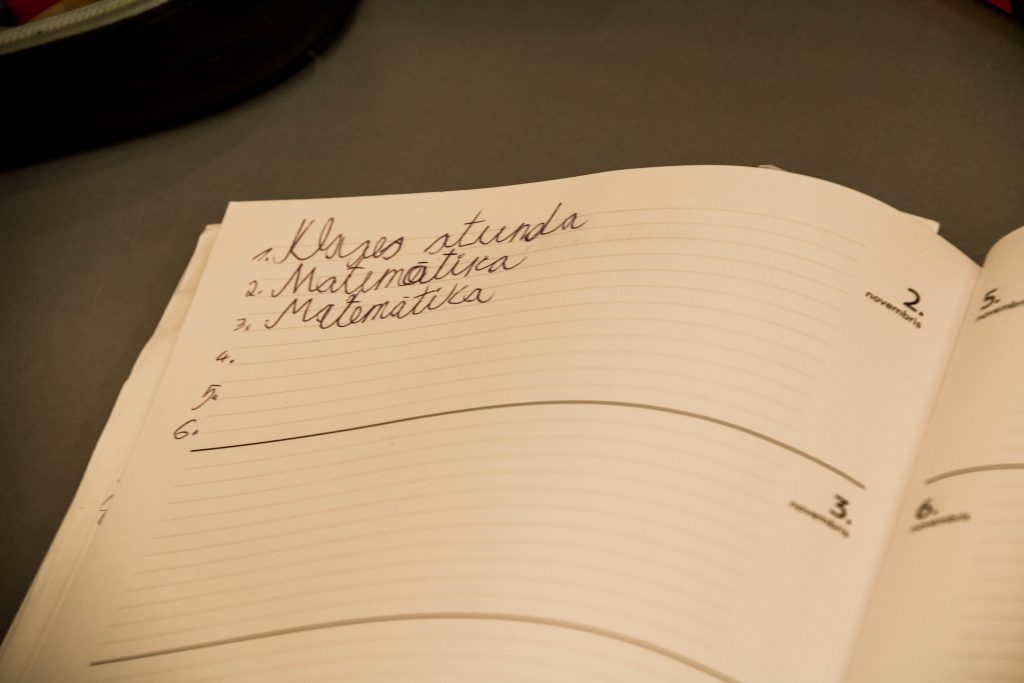 1. Klases stunda
2. Matemātika
3. Matemātika
4.
5.
6.
2.
novembris
3.
novembris
5.
novembris
6.
novembris